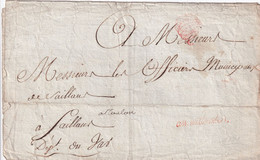 A Messieurs
Messieurs les Officiers Municipaux
de Taillans
a Toulon
à Taillans
Dept. du Var